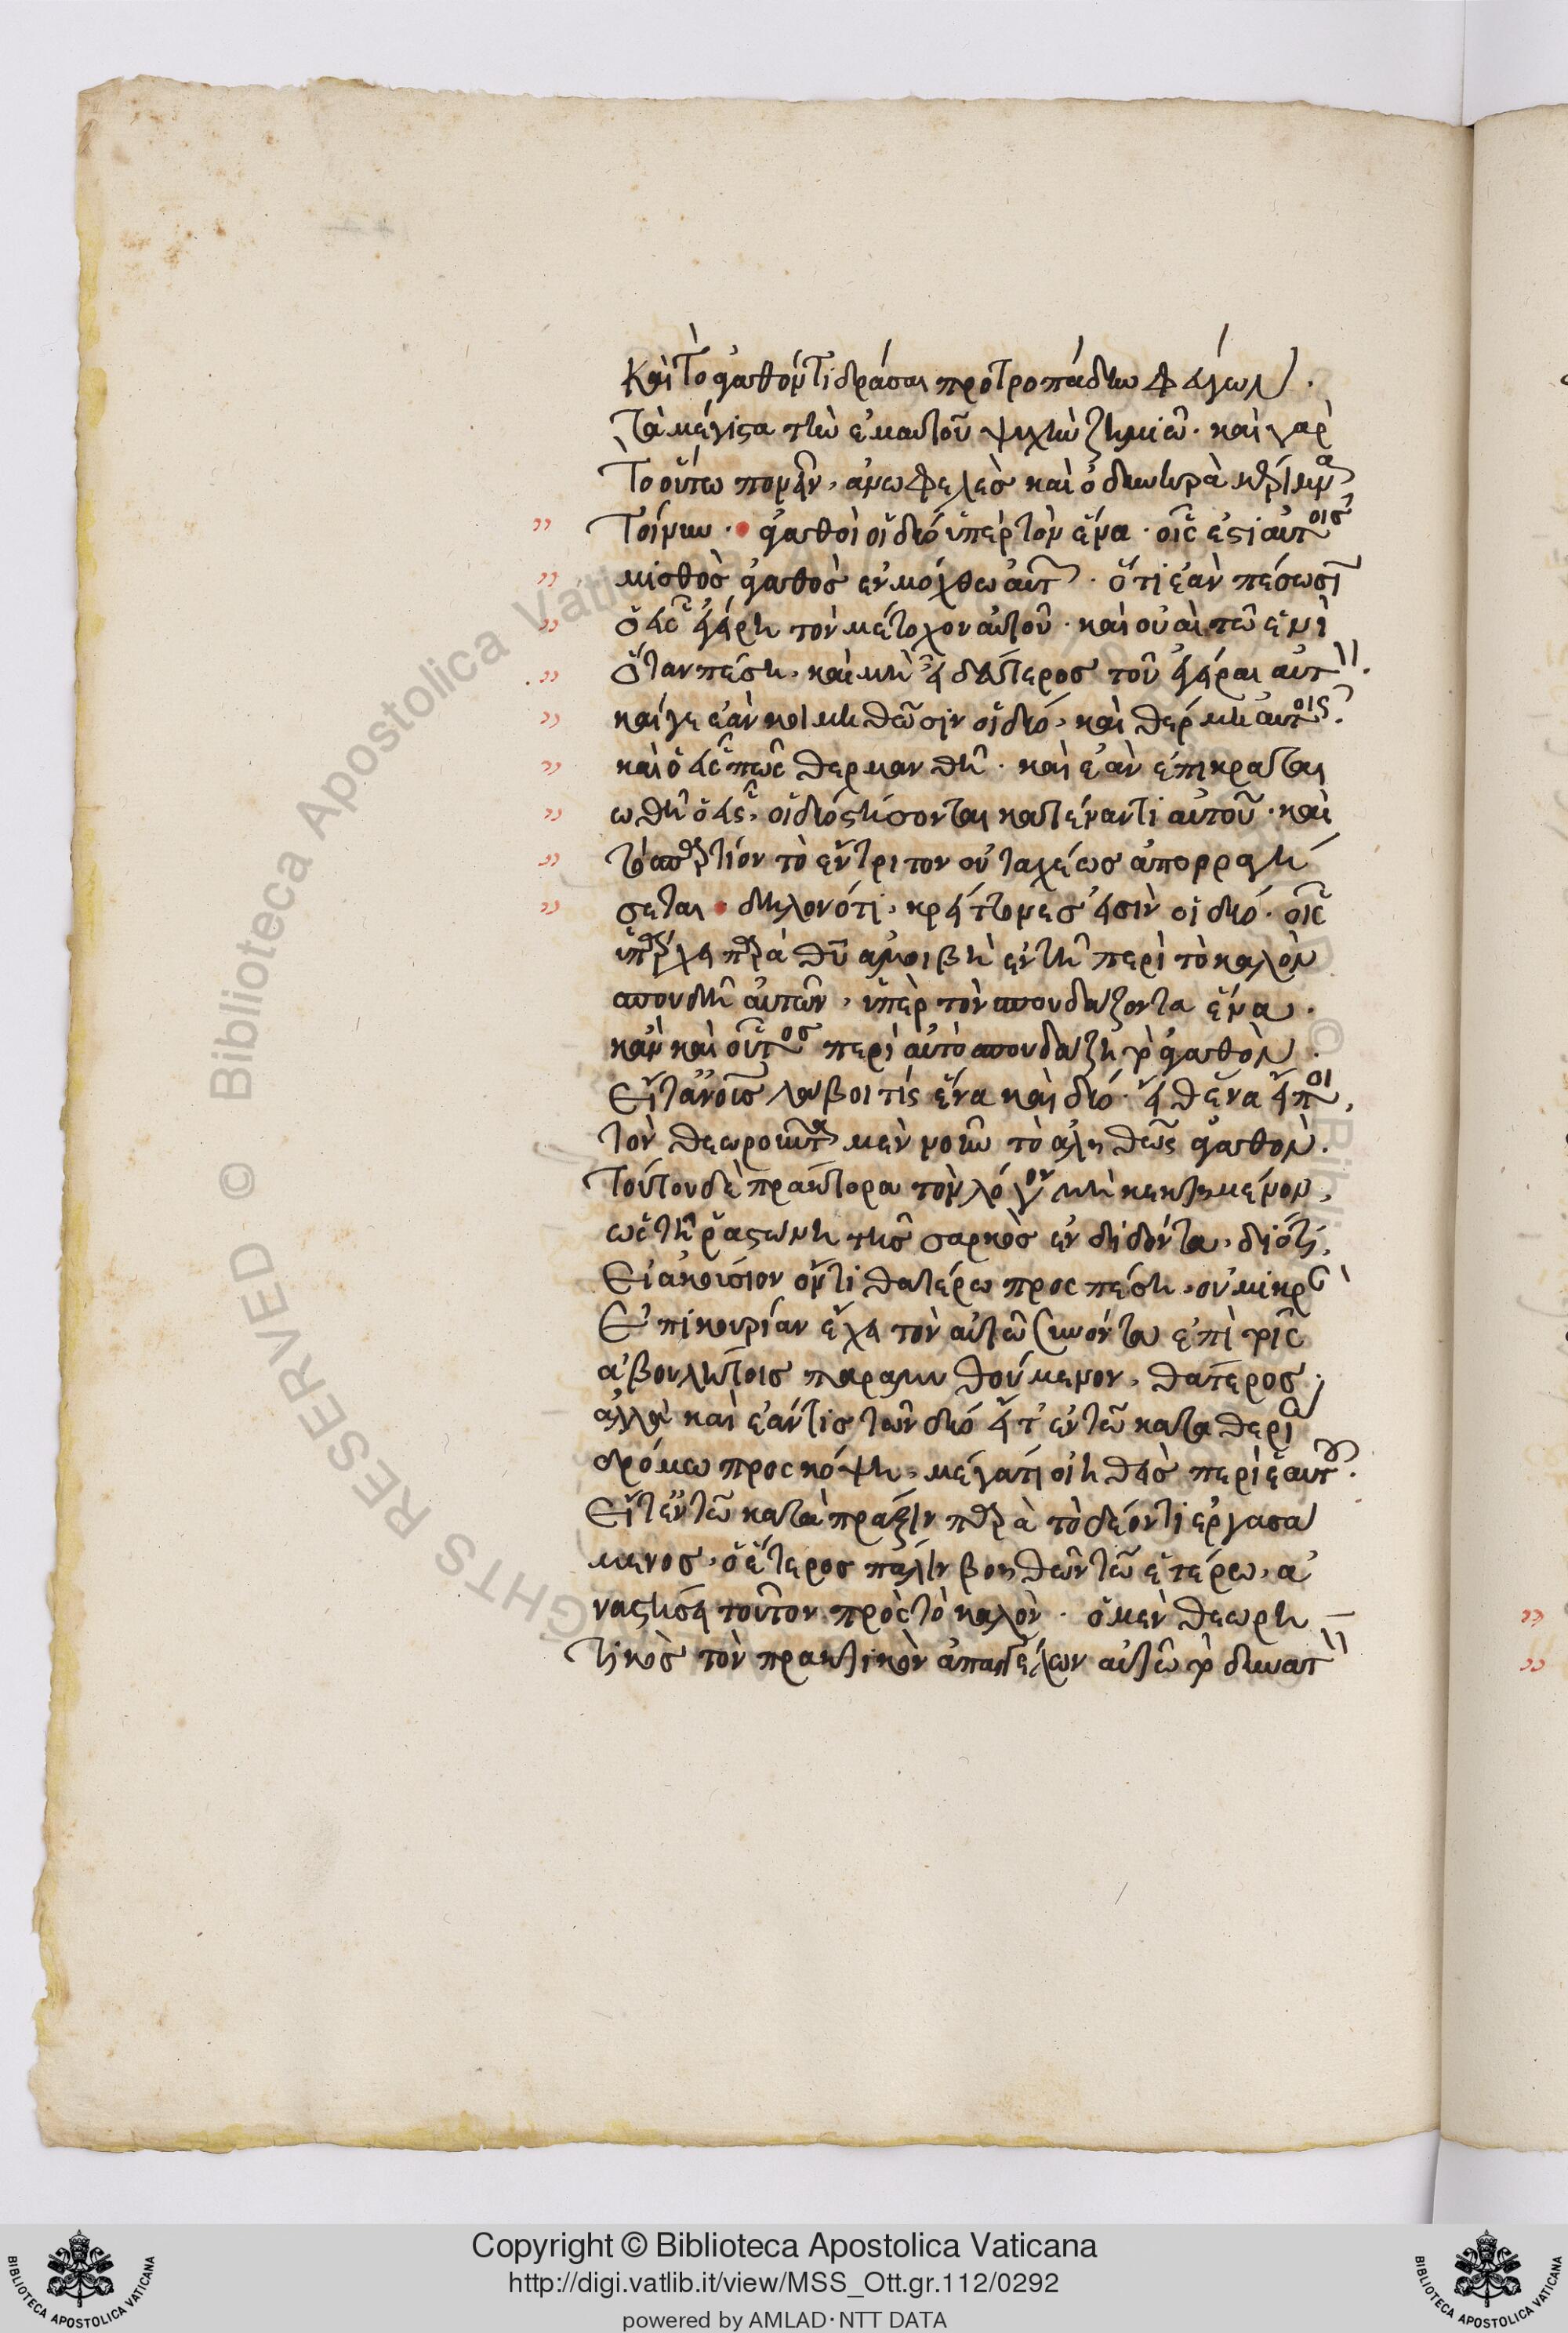 καὶ τὸ ἀγαθόν τι δρᾶσαι προτροπάδην φεύγων.
τὰ μέγιστα τὴν ἐμαυτοῦ ψυχὴν ζημιῶ. καὶ γὰρ
τὸ οὕτω πονεῖν, ἀνωφελὲς καὶ ὀδυνηρὰ
τοίνυν. ἀγαθοὶ οἱ δύο ὑπὲρ τὸν ἕνα. οἷς ἐστι αὐτοῖς
μισθὸς ἀγαθὸς ἐν μόχθω αὐτῶν. ὅτι ἐὰν πέσωσιν
ὁ εἷς ἐγείρη τὸν μέτοχον αὐτοῦ. καὶ οὐαὶ τῶ ἑνὶ
ὅταν πέση, καὶ μὴ ἦ δεύτερος τοῦ ἐγεῖραι αὐτόν.
καίγε ἐὰν κοιμηθῶσιν οἱ δύο, καὶ θέρμη αὐτοῖς.
καὶ ὁ εἷς πῶς θερμανθῆ. καὶ ἐὰν ἐπικραται
ωθῆ ὁ εἷς, οἱ δύο στήσονται κατέναντι αὐτοῦ. καὶ
τὸ σπαρτίον τὸ ἔντριτον οὐ ταχέως ἀπορραγή
σεται. δηλονότι, κρείττονες εἰσὶν οἱ δύο. οἷς
ὑπάρχει παρὰ θυ ἀμοιβὴ ἐν τῆ περὶ τὸ καλὸν
σπουδῆ αὐτῶν, ὑπὲρ τὸν σπουδάζοντα ἕνα.
κἂν καὶ οὗτος περὶ αὐτὸ σπουδάζη τὸ ἀγαθόν.
Εἴτ' ἀνοις λάβοι τίς ἕνα καὶ δύο. εἴθ' ἕνα εἴποι,
τὸν θεωροῦντα μὲν νοῦν τὸ ἀληθῶς ἀγαθόν.
τοῦτον δὲ πράκτορα τὸν λόγον μὴ κεκτημένον,
ὡς τῆ ῥαστώνη τῆς σαρκὸς ἐνδιδόντα, διότι,
Εἰ ἀκούσιον ὄντι θατέρω προσπέση, οὐ μικρὰν
Ἐπικουρίαν ἔχει τὸν αὐτῶ συνόντα ἐπὶ τοῖς
ἀβουλήτοις παραμυθούμενον, θάτερος.
ἀλλὰ καὶ ἐάν τις τῶν δύο εἴτ' ἐν τῶ κατὰ θεωρίαν
δρόμω προσκόψη, μέγα τι οἰηθεὶς περὶ ἑαυτοῦ.
Εἴτ' ἐν τῶ κατὰ πρᾶξιν παρὰ τὸ δέον τι ἐργασά
μενος, ὁ ἕτερος πάλιν βοηθῶν τῶ ἑτέρω, ἀ
ναστήσει τοῦτον πρὸς τὸ καλόν. ὁ μὲν θεωρη
τικὸς τὸν πρακτικὸν ἀπαγγέλλων αὐτῶ τὸ δυνατὸν
Copyright © Biblioteca Apostolica Vaticana
http://digi.vatlib.it/view/MSS_Ott.gr.112/0292
powered by AMLAD·NTT DATA